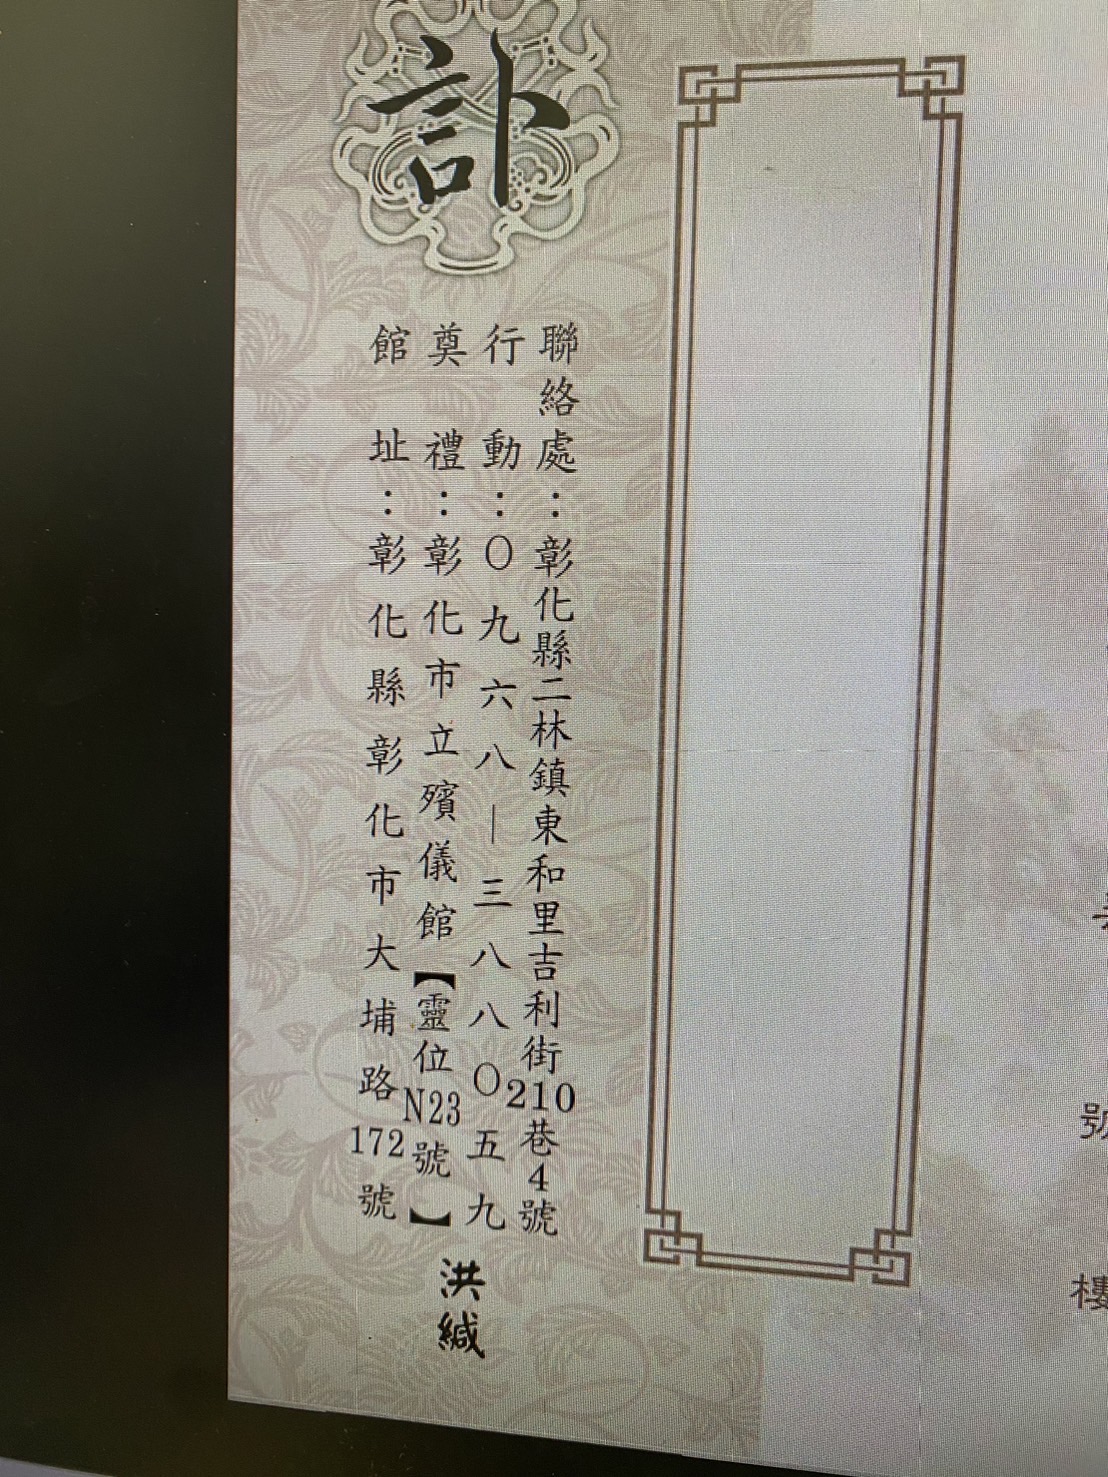 訃
聯絡處：彰化縣二林鎮東和里吉利街210巷4號
行動：〇九六八｜三八八〇五九
奠禮：彰化市立殯儀館【靈位N23號】
館址：彰化縣彰化市大埔路172號
洪緘
號
樓